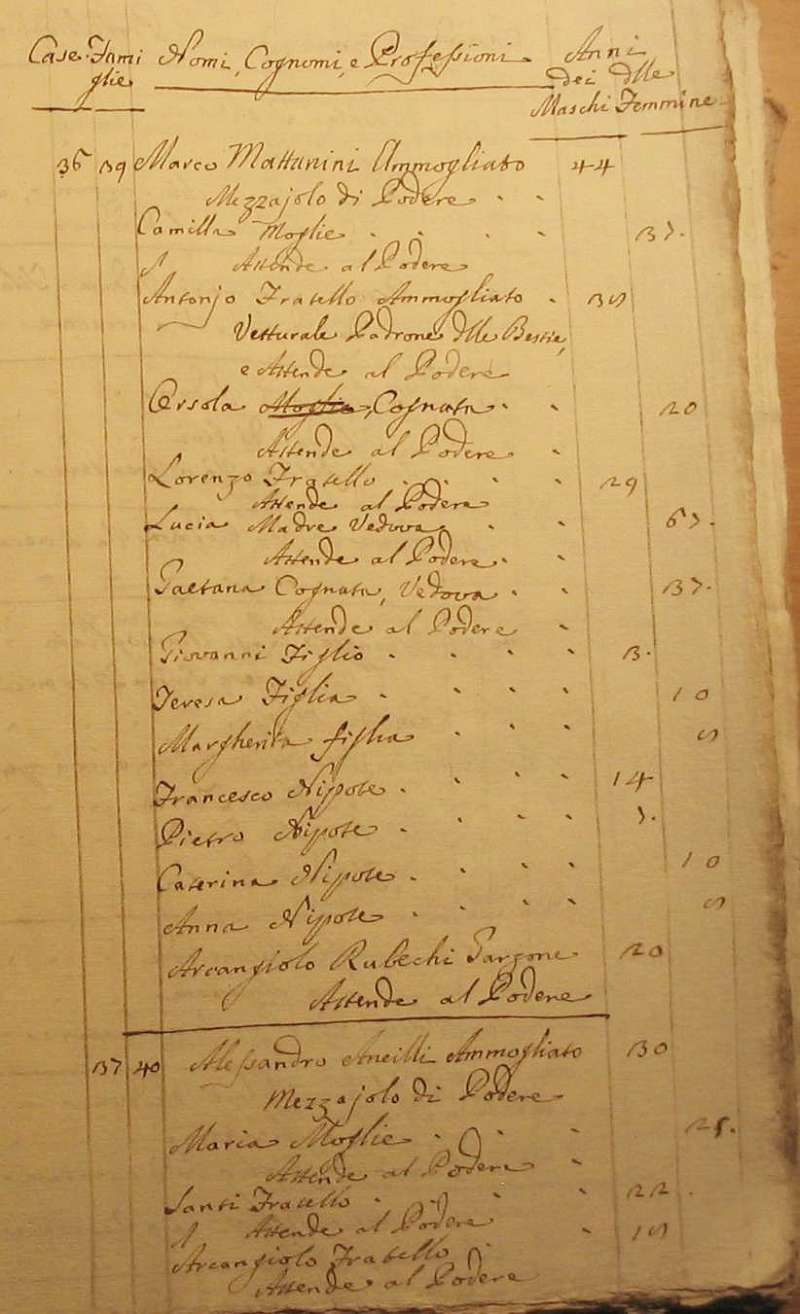 Case. Fami Nomi, Cognomi, e Professioni. Anni
glie dei dlle
Maschi Femmine
36 39 Marco Mattanini Ammogliato 44
Mezzajolo di Podere
Camilla Moglie 37.
Attende al Podere
Antonjo Fratello Ammogliato
Vetturale Padrone dlle Bestie,
e Attende al Podere
Orsola Moglie, Cognata 20
Attende al Podere
Lorenzo Fratello 29
Attende al Podere
Lucia Madre Vedova 67.
Attende al Podere
Gaetana Cognata, Vedova 37.
Attende al Podere
Giovanni Figlio 3.
Teresa Figlia 10
Margherita figlia
Francesco Nipote 14
Pietro Nipote 7.
Caterina Nipote 10
Anna Nipote
Arcangiolo Rubechi Garzone 20
Attende al Podere
37 40 Alessandro Ancilli Ammogliato 30
Mezzajolo di Podere
Maria Moglie 25.
Attende al Podere
Santi Fratello 22.
Attende al Podere
Arcangiolo Fratello
Attende al Podere